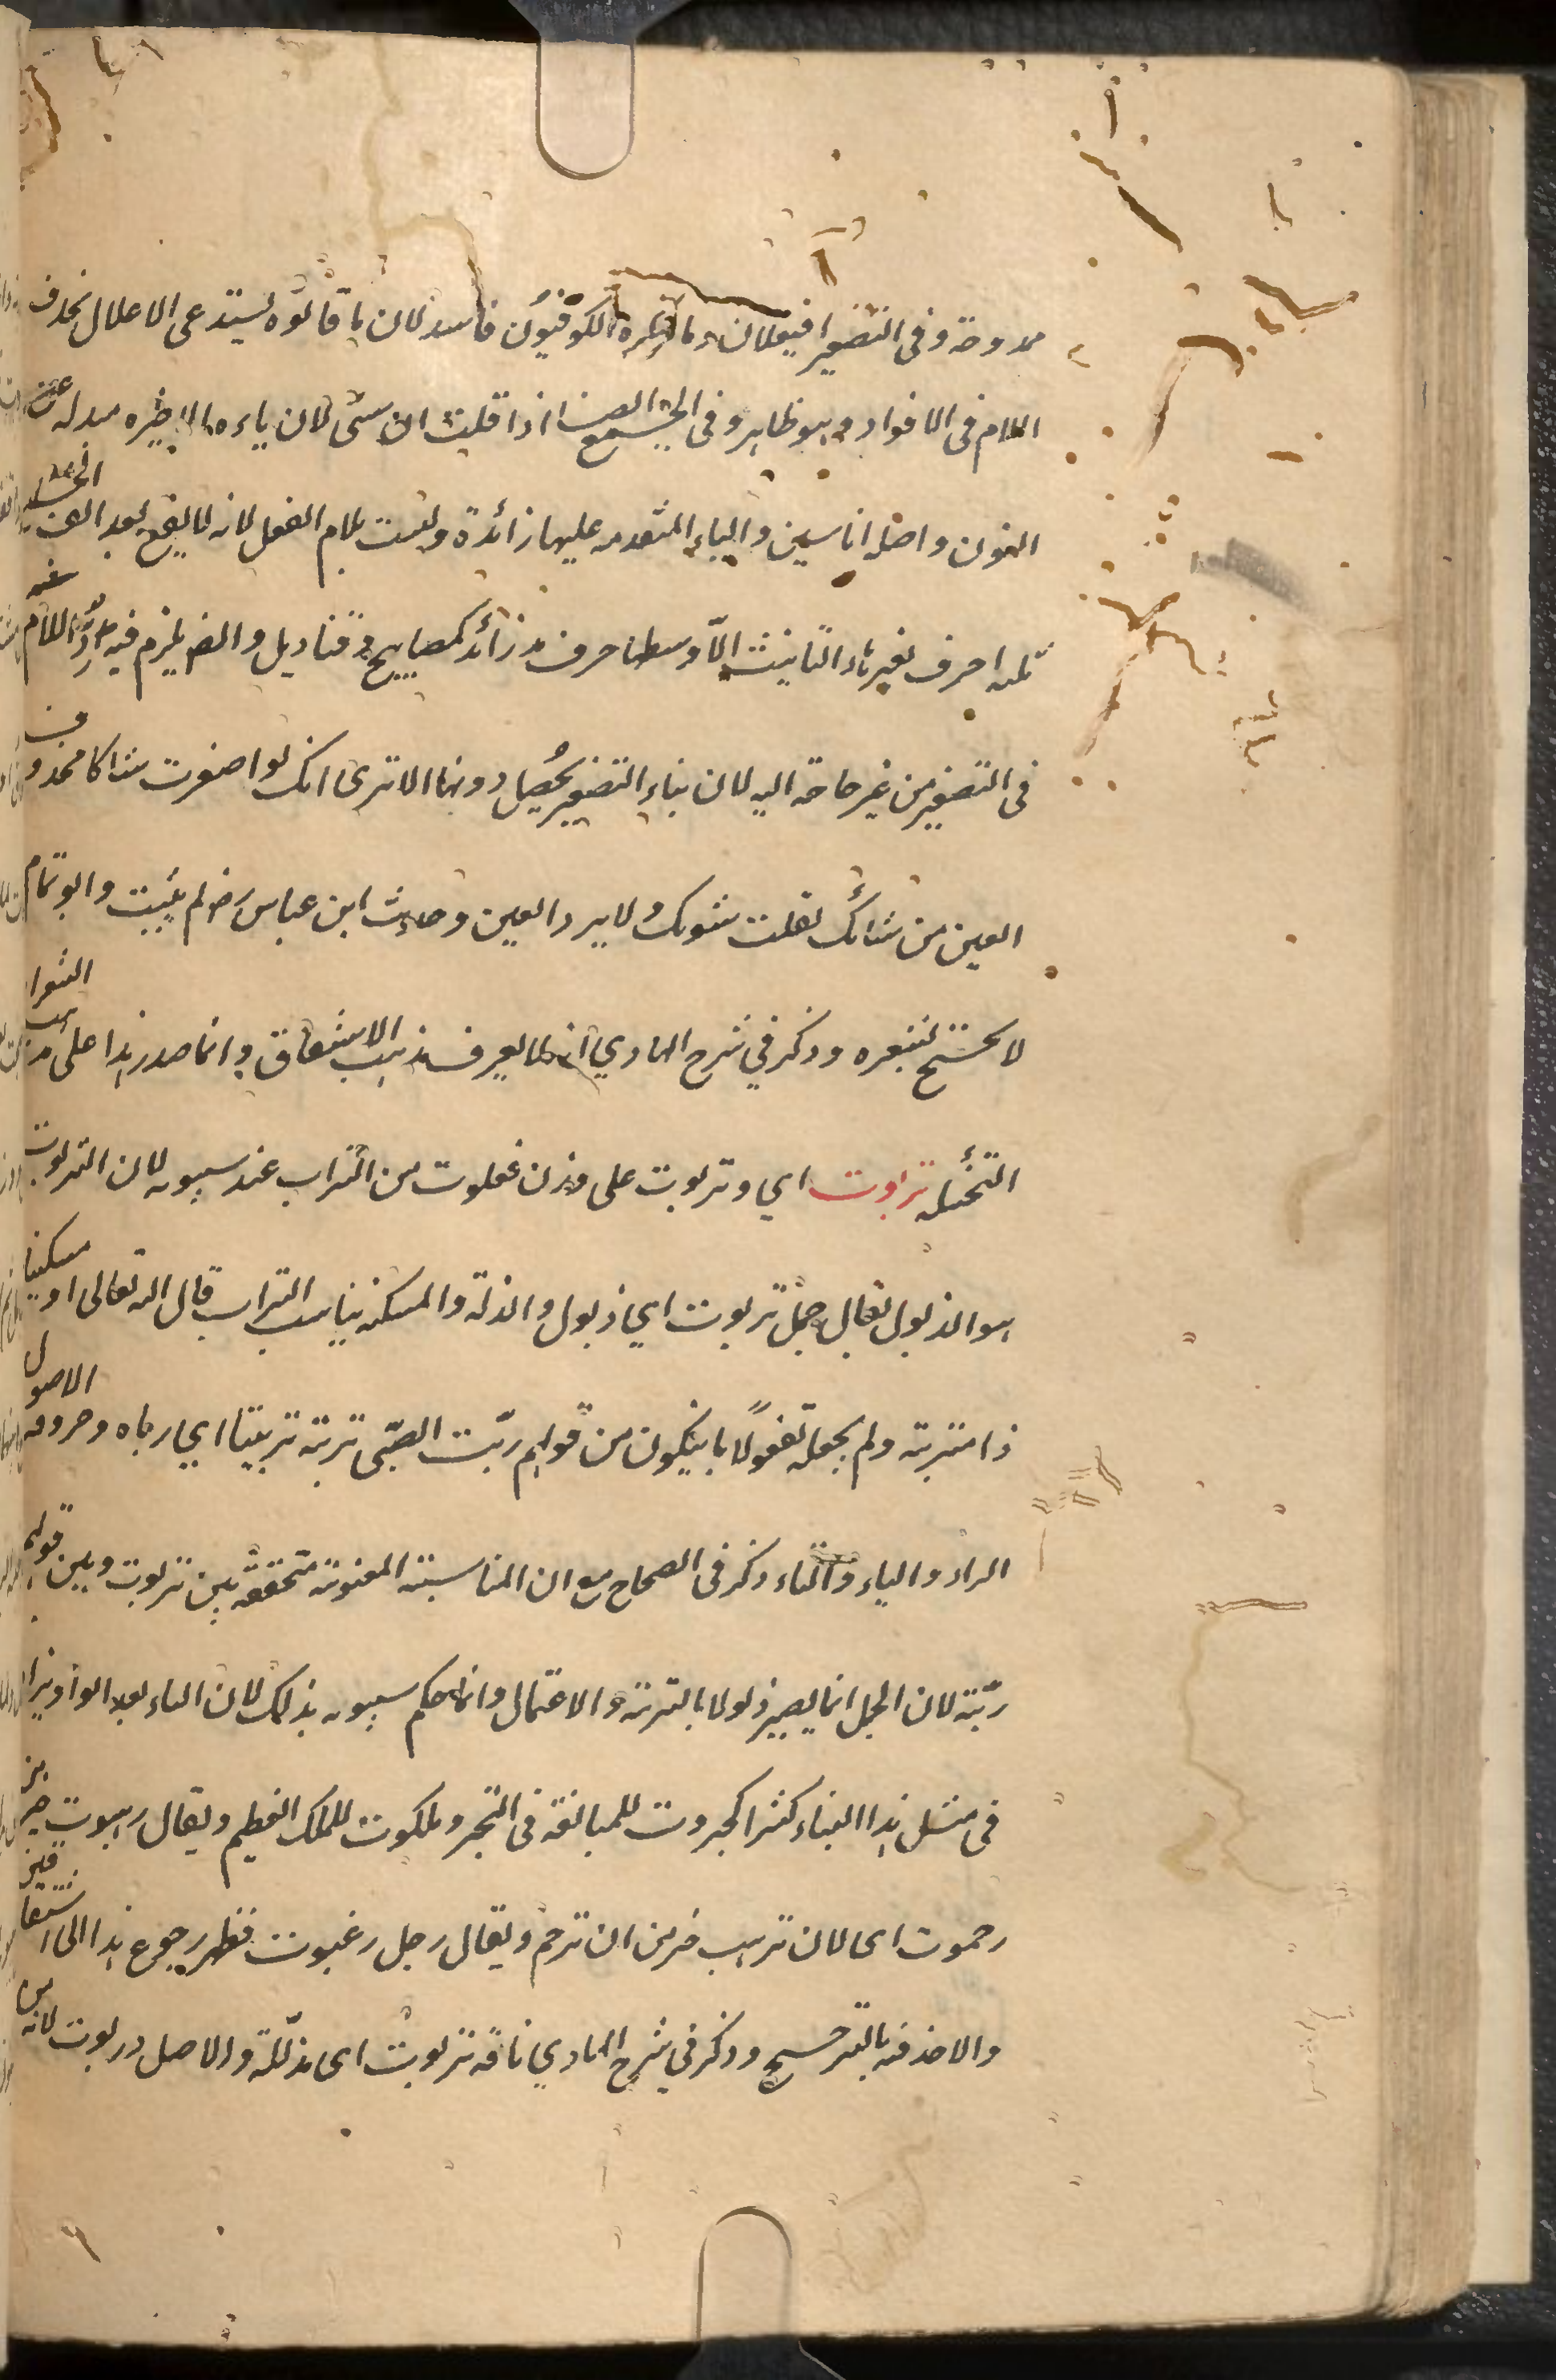 ممدوحة وفى التصغير افيعلان وما ذكره الكوفيون فاسد لان ما قالوه يستدعى الاعلال بحذف
اللام فى الافراد وهو ظاهر وفى الجمع ايضا اذا قلت اناسىّ لان ياءه الاخيره مبدله عن
النون واصله اناسين والياء المتقدمه عليها زائدة وليست بلام الفعل لانه لا يقع بعد الف الجمع
ثلثه احرف بغير هاء التانيث الا واوسطها حرف مد زائد كمصابيح وقناديل وايضا يلزم فيه ردّ اللام
فى التصغير من غير حاجة اليه لان بناء التصغير يحصل دونها الا ترى انك لو اصغرت شاكا محذوف
العين من شائك لقلت شويك ولا يرد العين وحديث ابن عباس رضـ لم يثبت وابو تمام
لا يحتج بشعره وذكر في شرح الهادي انه لا يعرف مذهب الاشتقاق وانما صدر هذا على مذهب الشعراء
التخيله تربوت اي وتربوت على وزن فعلوت من التراب عند سيبويه لان التربوت
هو الذلول يقال جمل تربوت اي ذلول والذلة والمسكنه يناسب التراب قال الله تعالى او مسكينا
ذا متربة ولم يجعله تفعولا بان يكون من قولهم ربّت الصبى تربته تربيتا اي رباه وحروفه الاصول
الراء والباء والتاء ذكر فى الصحاح مع ان المناسبة المعنوية متحققة بين تربوت وبين قولهم
ربّته لان الجمل انما يصير ذلولا بالتربية والاعتمال وانما حكم سيبويه بذلك لان التاء بعد الواو يزاد
فى مثل هذا البناء كثيرا كجبروت للمبالغة فى التجبر وملكوت للملك العظيم ويقال رهبوت خير من
رحموت اى لان ترهب خير من ان ترحم ويقال رجل رغبوت فظهر رجوع هذا الى اشتقاقين
والاخذ فيه بالترجيح وذكر في شرح الهادي ناقة تربوت اى مذللة والاصل دربوت لانه من